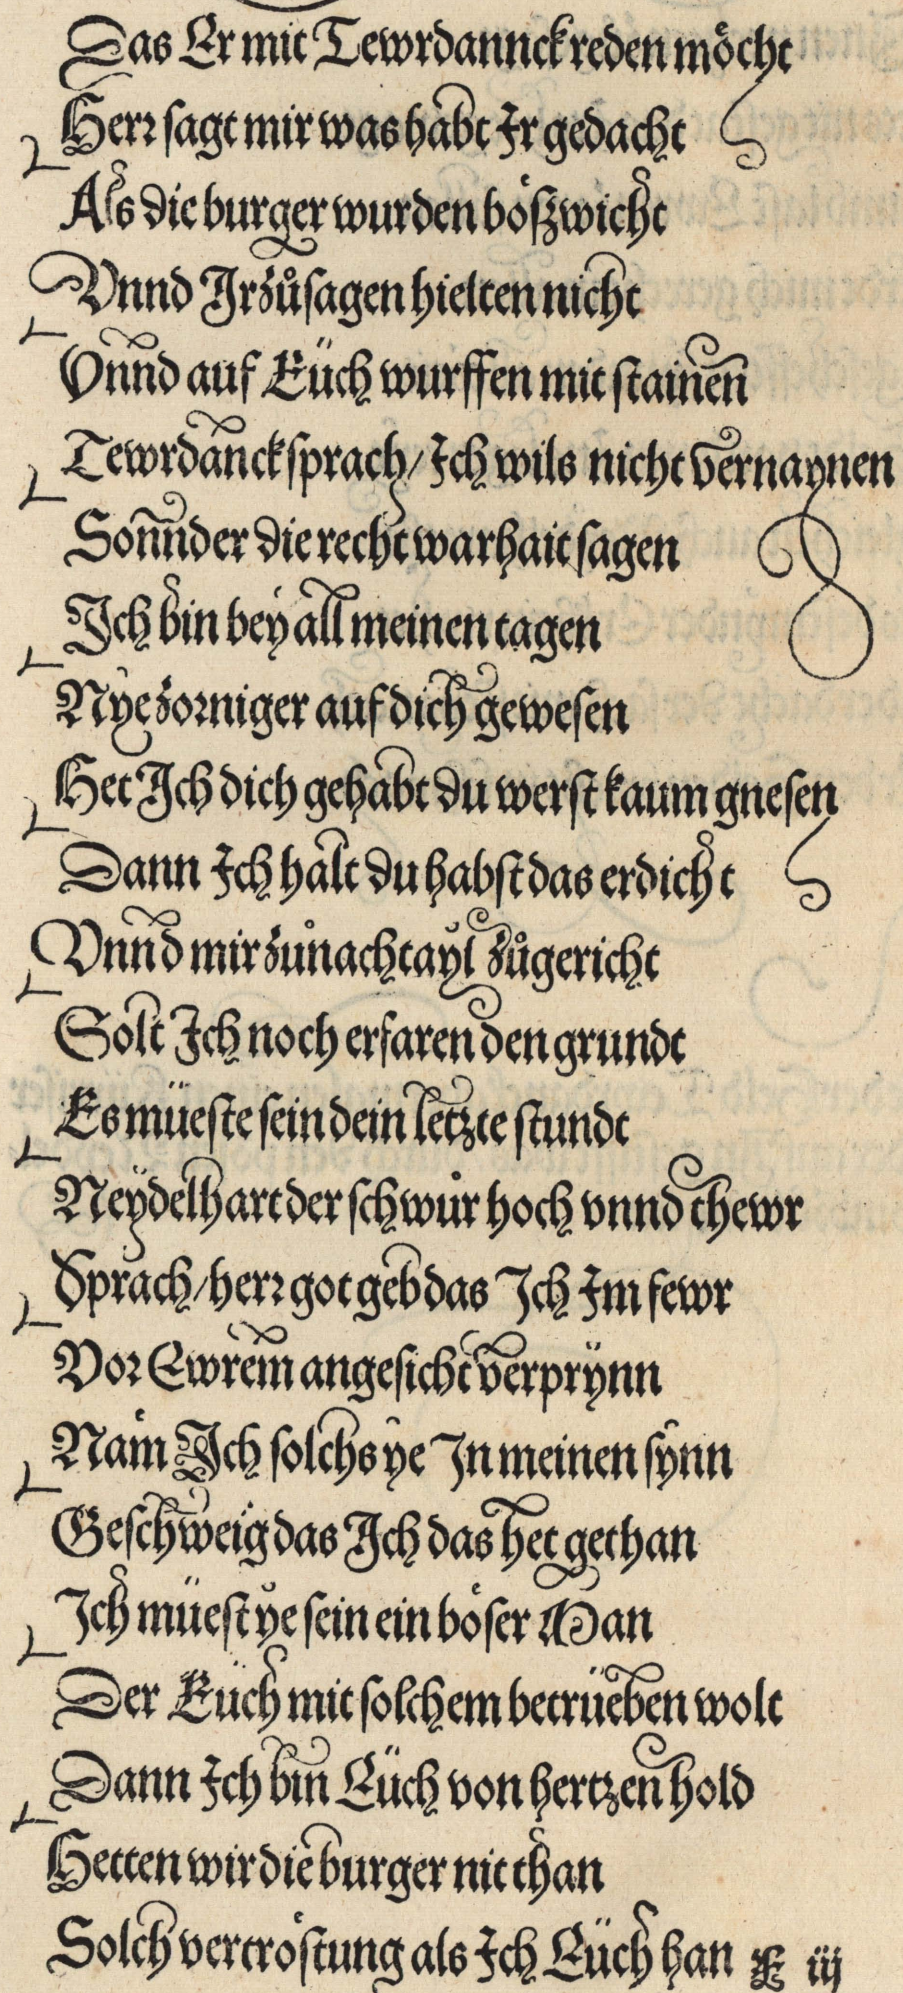 Das Er mit Tewrdannck reden möcht
Herr sagt mir was habt Ir gedacht
Als die burger wurden böszwicht
Vnnd Ir zůsagen hielten nicht
Vnnd auf Eüch wurffen mit stainen
Tewrdanck sprach / Ich wils nicht vernaynen
Sonnder die recht warhait sagen
Ich bin bey all meinen tagen
Nye zorniger auf dich gewesen
Het Ich dich gehabt du werst kaum gnesen
Dann Ich halt du habst das erdicht
Vnnd mir zů nachtayl zůgericht
Solt Ich noch erfaren den grundt
Es müeste sein dein letzte stundt
Neydelhart der schwůr hoch vnnd thewr
Sprach / herr got geb das Ich Im fewr
Vor Ewrem angesicht verprynn
Nam Ich solchs ye In meinen synn
Geschweig das Ich das het gethan
Ich müest ye sein ein böser Man
Der Eüch mit solchem betrüeben wolt
Dann Ich bin Eüch von hertzen hold
Hetten wir die burger nit than
Solch vertröstung als Ich Eüch han iij